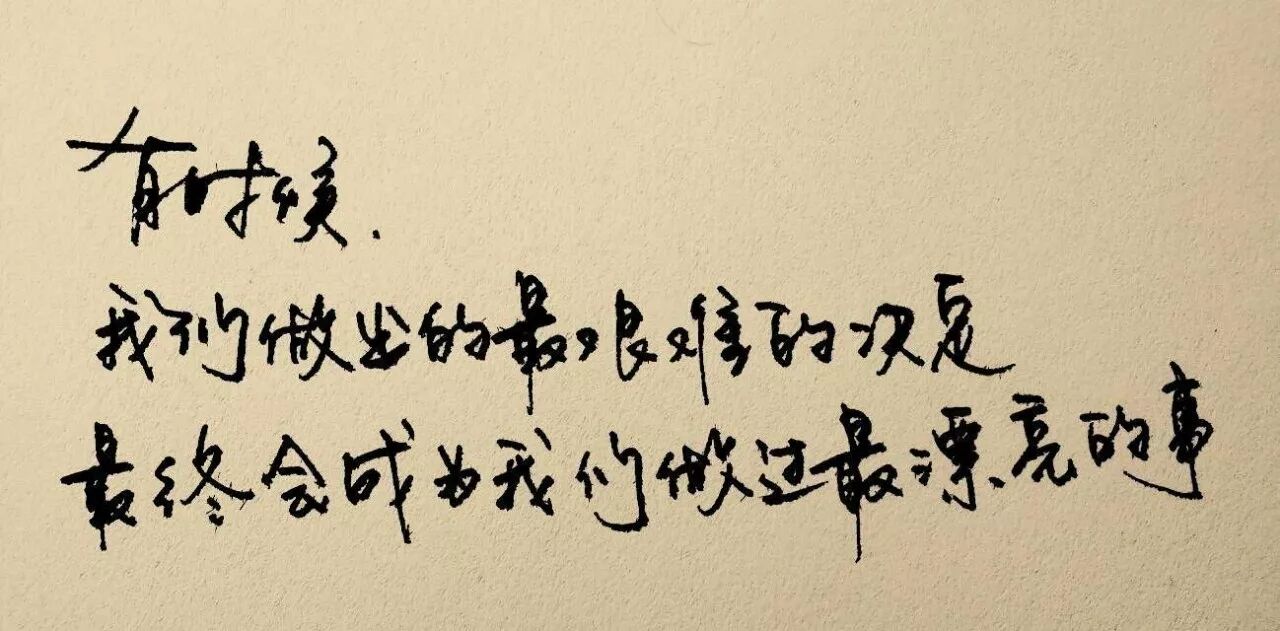 有时候.
我们做出的最艰难的决定
最终会成为我们做过最漂亮的事